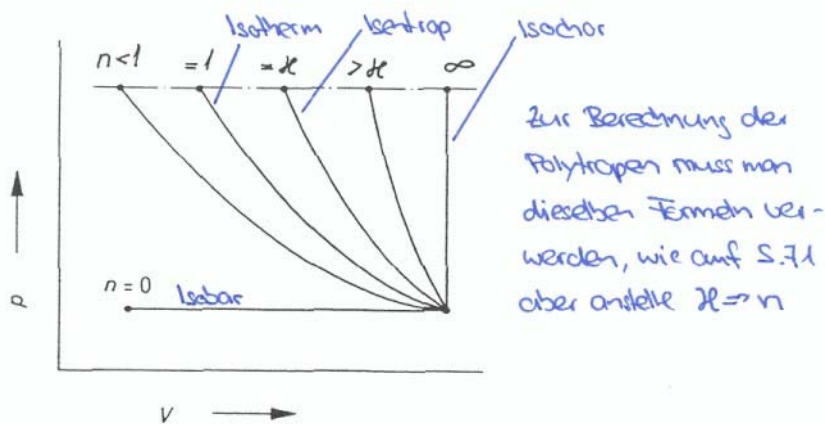 Isotherm Isentrop Isochor
n<1 =1 =ϰ >ϰ ∞
Zur Berechnung der
Polytropen muss man
dieselben Formeln ver-
werden, wie auf S.71
aber anstelle ϰ => n
n=0 Isobar
p
V